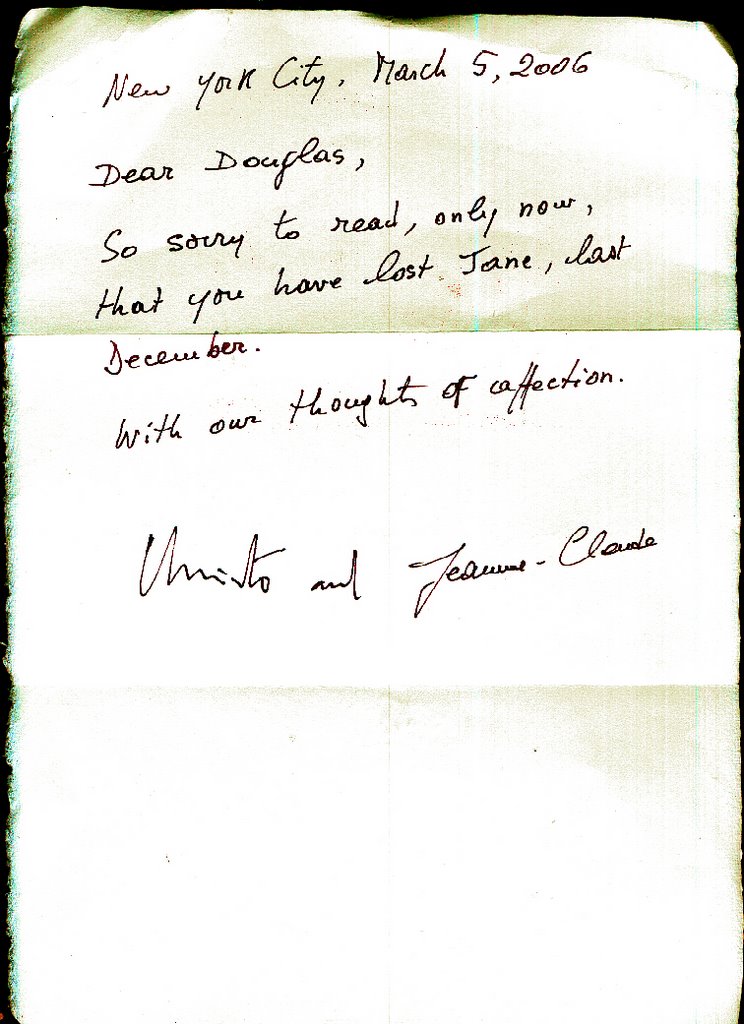 New York City, March 5, 2006
Dear Douglas,
So sorry to read, only now,
that you have lost Jane, last
December.
With our thoughts of affection.
Christo and Jeanne-Claude